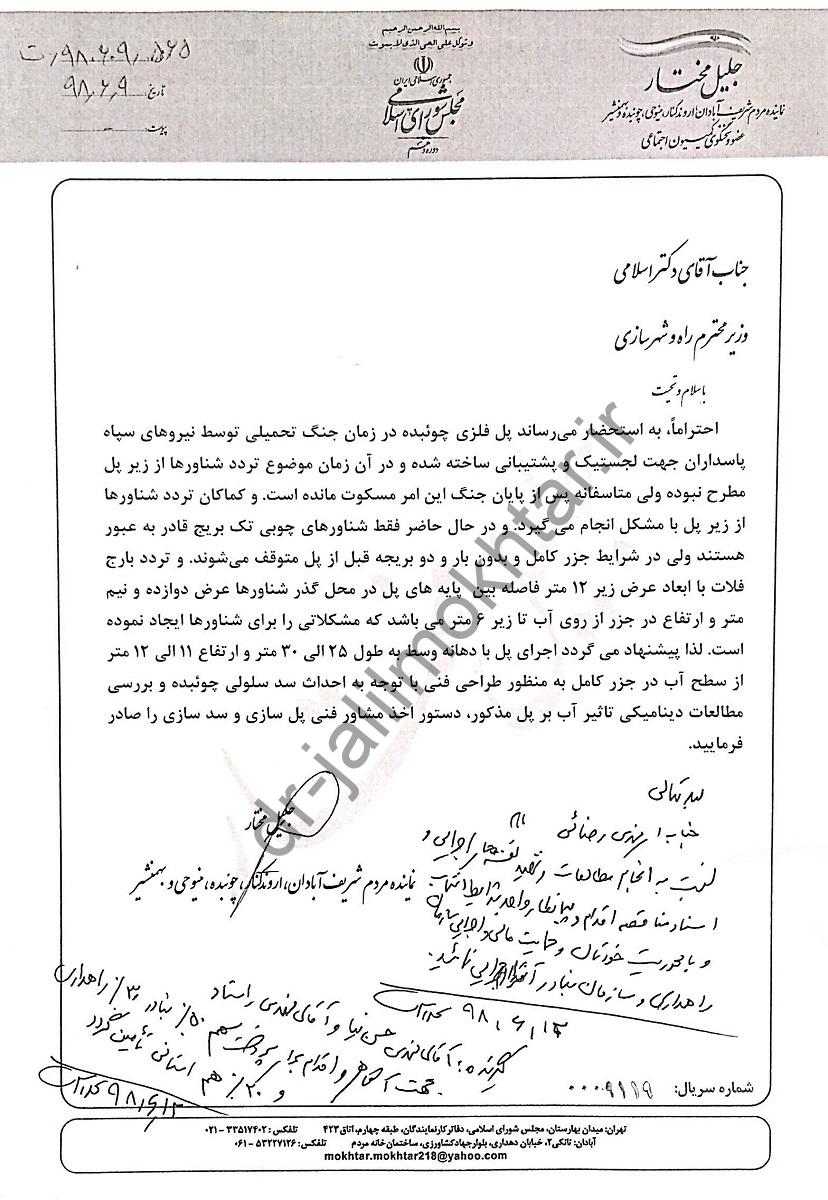 بسم الله الرحمن الرحیم
و توکل علی الحی الذی لا یموت
جمهوری اسلامی ایران
مجلس شورای اسلامی
دوره دهم
جلیل مختار
نماینده مردم شریف آبادان، اروندکنار، منیوحی، چوئبده و بهمنشیر
عضو و سخنگوی کمیسیون اجتماعی
۹۸،۶،۹،۵۶۵،ت
تاریخ ۹۸،۶،۹
پیوست
جناب آقای دکتر اسلامی
وزیر محترم راه و شهرسازی
با سلام و تحیت
احتراماً، به استحضار می‌رساند پل فلزی چوئبده در زمان جنگ تحمیلی توسط نیروهای سپاه
پاسداران جهت لجستیک و پشتیبانی ساخته شده و در آن زمان موضوع تردد شناورها از زیر پل
مطرح نبوده ولی متاسفانه پس از پایان جنگ این امر مسکوت مانده است. و کماکان تردد شناورها
از زیر پل با مشکل انجام می گیرد. و در حال حاضر فقط شناورهای چوبی تک بریج قادر به عبور
هستند ولی در شرایط جزر کامل و بدون بار و دو بریجه قبل از پل متوقف می‌شوند. و تردد بارج
فلات با ابعاد عرض زیر ۱۲ متر فاصله بین پایه های پل در محل گذر شناورها عرض دوازده و نیم
متر و ارتفاع در جزر از روی آب تا زیر ۶ متر می باشد که مشکلاتی را برای شناورها ایجاد نموده
است. لذا پیشنهاد می گردد اجرای پل با دهانه وسط به طول ۲۵ الی ۳۰ متر و ارتفاع ۱۱ الی ۱۲ متر
از سطح آب در جزر کامل به منظور طراحی فنی با توجه به احداث سد سلولی چوئبده و بررسی
مطالعات دینامیکی تاثیر آب بر پل مذکور، دستور اخذ مشاور فنی پل سازی و سد سازی را صادر
فرمایید.
جلیل مختار
نماینده مردم شریف آبادان، اروندکنار، چوئبده، منیوحی و بهمنشیر
بسمه تعالی
جناب مهندس رضائی
نسبت به انجام مطالعات و تهیه نقشه های اجرایی و
اسناد مناقصه اقدام و
و با محوریت خودتان و حمایت مالی و اجرایی
راهداری و سازمان بنادر
۹۸،۶،۱۳
گیرنده: آقای مهندس حسن نیا و آقای مهندس راستاد
جهت آگاهی و اقدام برای پرداخت سهم ۵۰٪ بنادر ۳۰٪ راهداری
و ۲۰٪ هم استانی تأمین گردد
۹۸،۶،۱۳
شماره سریال: ۰۰۰۹۱۱۹
تهران: میدان بهارستان، مجلس شورای اسلامی، دفاتر کار نمایندگان، طبقه چهارم، اتاق ۴۲۳ تلفکس: ۳۳۵۱۷۴۰۲ - ۰۲۱
آبادان: تانکی۲، خیابان دهداری، بلوار جهاد کشاورزی، ساختمان خانه مردم تلفکس: ۵۳۲۲۷۱۲۶ - ۰۶۱
mokhtar.mokhtar218@yahoo.com
dr-jalilmokhtar.ir